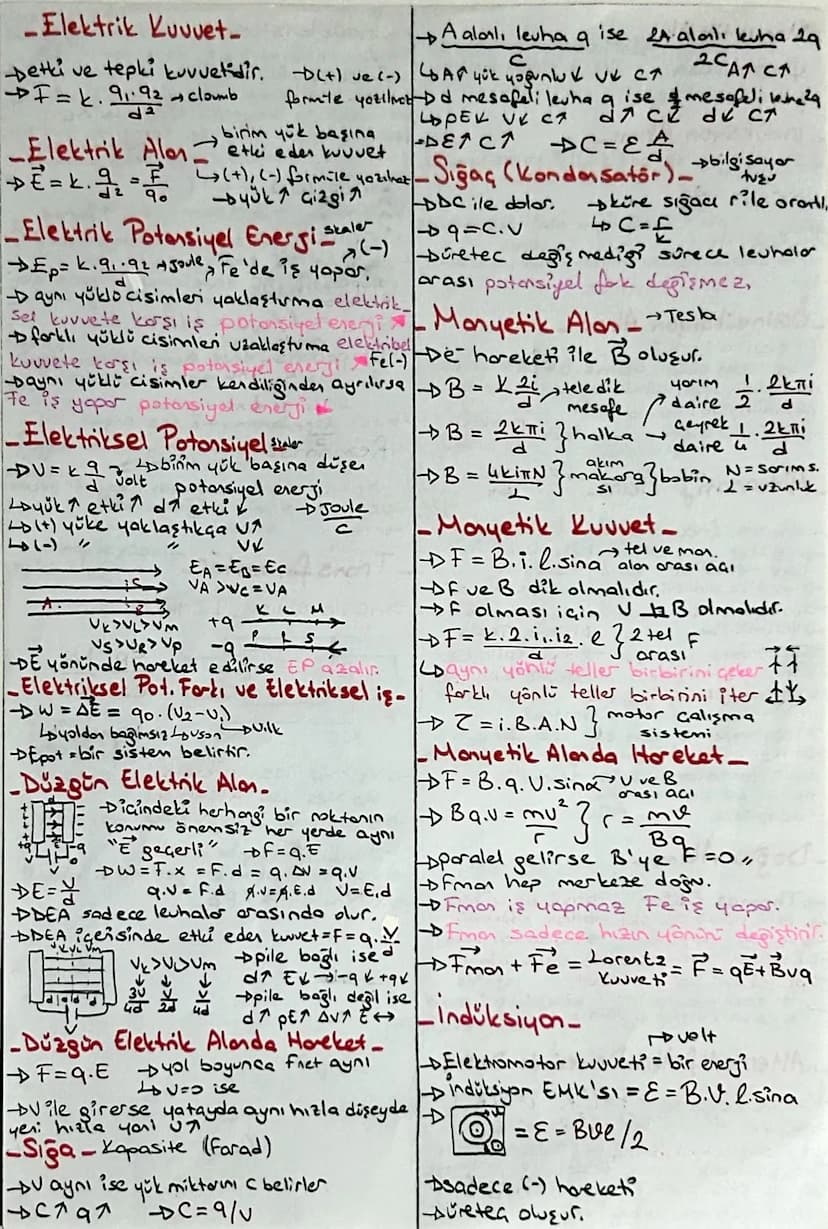 _Elektrik Kuvvet_
→etki ve tepki kuvvetidir. →(+) ve (-)
→F = k. q₁.q₂/d² → cloumb formüle yazılmaz
_Elektrik Alan_ → birim yük başına etki eden kuvvet
→E⃗ = k. q/d² = F⃗/q₀ ↳(+), (-) formüle yazılmaz
→yük↑ çizgi↑
_Elektrik Potansiyel Enerji_ skaler
→Eₚ= k.q₁.q₂/d →joule, Fe'de iş yapar. ↗(-)
→aynı yüklü cisimleri yaklaştırma elektrik-
sel kuvvete karşı iş potansiyel enerji ↗
→farklı yüklü cisimleri uzaklaştırma elektriksel
kuvvete karşı iş potansiyel enerji ↗ Fe(-)
→aynı yüklü cisimler kendiliğinden ayrılırsa
Fe iş yapar potansiyel enerji ↙
_Elektriksel Potansiyel skaler
→V = k q/d → volt ↳birim yük başına düşen
potansiyel enerji
↳yük↑ etki↑ d↑ etki↓ →joule/C
↳(+) yüke yaklaştıkça V↑
↳(-) " " V↓
A. .C .B
E_A = E_B = E_C
V_A > V_C = V_A
V_K>V_L>V_M +q K L M
V_S>V_R>V_P -q P L S
→E⃗ yönünde hareket edilirse EP azalır.
_Elektriksel Pot. Farkı ve Elektriksel iş_
→W = ΔE = q₀.(V₂-V₁)
↳yoldan bağımsız ↳Vson ↳Vilk
→Epot = bir sistem belirtir.
_Düzgün Elektrik Alan_
→içindeki herhangi bir noktanın
konumu önemsiz her yerde aynı
"E⃗ geçerli" →F=q.E
→W=F.x = F.d = q.ΔV = q.V
→E=V/d q.V = F.d q.V=q.E.d V=E.d
→DEA sadece levhalar arasında olur.
→DEA içerisinde etki eden kuvvet=F=q.V/d
V_K V_L V_M
V_K>V_L>V_M →pile bağlı ise
3V/4d V/2d V/4d d↑ E↓ -q↓ +q↓
d d d d →pile bağlı değil ise
d↑ PE↑ ΔV↑ E↔
_Düzgün Elektrik Alanda Hareket_
→F=q.E →yol boyunca Fnet aynı
↳V=0 ise
→V ile girerse yatayda aynı hızla düşeyde
yeni hızla yani V↑
_Sığa_ Kapasite (Farad)
→V aynı ise yük miktarını C belirler
→C↑ q↑ →C=q/V
→A alanlı levha q ise 2A alanlı levha 2q
C 2C
↳A↑ yük yoğunlu↓ V↓ C↑ A↑ C↑
→d mesafeli levha q ise mesafeli levha 2q
↳PE↓ V↓ C↑ d↑ C↓ d↓ C↑
→E↑ C↑ →C=ε A/d
_Sığaç (Kondansatör)_ →bilgisayar tuşu
→DC ile dolar. →küre sığacı r ile orantılı
→q=C.V ↳C=r/k
→Üreteç değişmediği sürece levhalar
arası potansiyel fark değişmez.
_Manyetik Alan_ →Tesla
→e⁻ hareketi ile B⃗ oluşur.
→B = K 2i/d →tele dik mesafe yarım daire 1/2 . 2kπi/d
→B = 2kπi/d } halka → çeyrek daire 1/4 . 2kπi/d
→B = 4kiπN/L } akım makarası } bobin N=sarım s. L=uzunluk
_Manyetik Kuvvet_
→F = B.i.l.sina → tel ve man. alan arası açı
→F ve B dik olmalıdır.
→F olması için V B olmalıdır.
→F= k.2.i₁.i₂/d .l } 2 tel arası F
↳aynı yönlü teller birbirini çeker
farklı yönlü teller birbirini iter
→τ=i.B.A.N } motor çalışma sistemi
_Manyetik Alanda Hareket_
→F=B.q.V.sina→V ve B arası açı
→Bq.v = mv²/r } r = mv/Bq
→paralel gelirse B'ye F=0,,
→Fman hep merkeze doğru.
→Fman iş yapmaz Fe iş yapar.
→Fman sadece hızın yönünü değiştirir.
→F⃗man + F⃗e = Lorentz Kuvveti = F⃗ = qE⃗+B⃗vq
_İndüksiyon_
→volt
→Elektromotor kuvveti = bir enerji
→indüksiyon EMK'sı = ε = B.V.l.sina
→ = ε = Bvl/2
→sadece (-) hareketi
→üreteç oluşur.